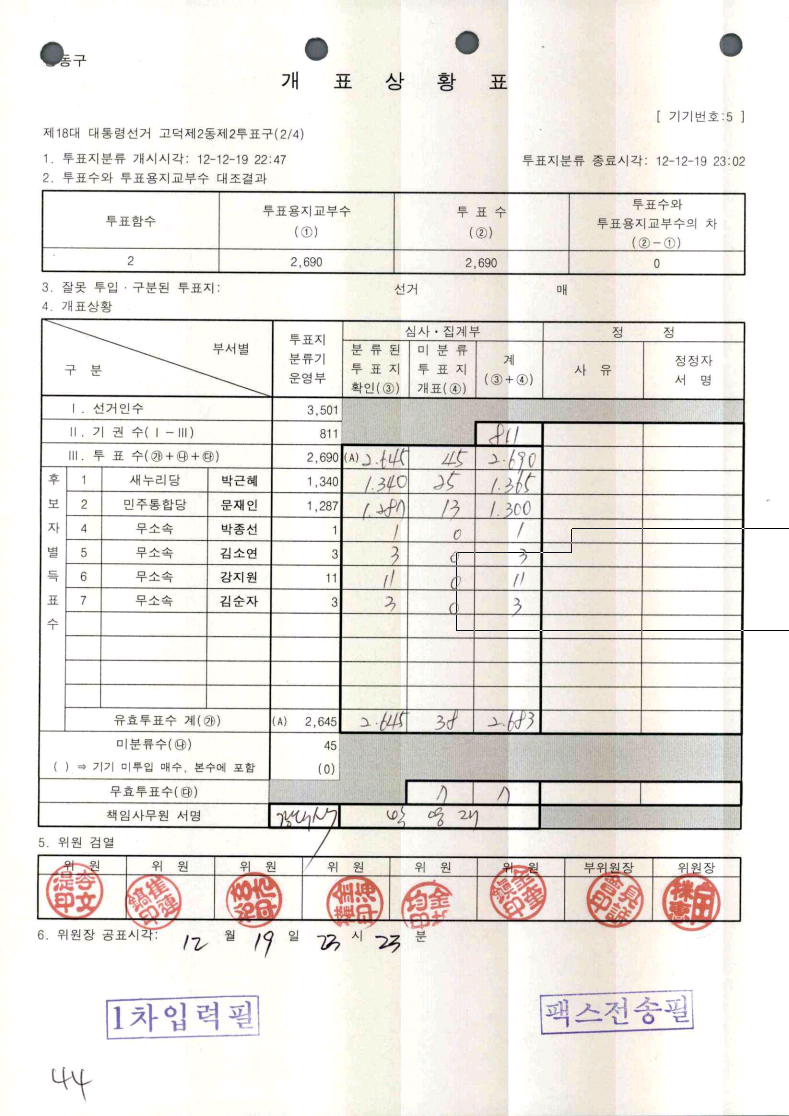 동구
개 표 상 황 표
[ 기기번호:5 ]
제18대 대통령선거 고덕제2동제2투표구(2/4)
1. 투표지분류 개시시각: 12-12-19 22:47 투표지분류 종료시각: 12-12-19 23:02
2. 투표수와 투표용지교부수 대조결과
투표함수 투표용지교부수 (①) 투 표 수 (②) 투표수와 투표용지교부수의 차 (②-①)
2 2,690 2,690 0
3. 잘못 투입·구분된 투표지: 선거 매
4. 개표상황
구 분 부서별 투표지 분류기 운영부 심사·집계부 정 정
분 류 된 투 표 지 확인(③) 미 분 류 투 표 지 개표(④) 계 (③+④) 사 유 정정자 서 명
Ⅰ. 선거인수 3,501
Ⅱ. 기 권 수(Ⅰ-Ⅲ) 811 811
Ⅲ. 투 표 수(㉮+㉯+㉰) 2,690 (A) 2.645 45 2.690
후보자별득표수
1 새누리당 박근혜 1,340 1.340 25 1.365
2 민주통합당 문재인 1,287 1.287 13 1.300
4 무소속 박종선 1 1 0 1
5 무소속 김소연 3 3 0 3
6 무소속 강지원 11 11 0 11
7 무소속 김순자 3 3 0 3
유효투표수 계(㉮) (A) 2,645 2.645 38 2.683
미분류수(㉯) 45
( ) ⇒ 기기 미투입 매수, 본수에 포함 (0)
무효투표수(㉰) 7 7
책임사무원 서명
5. 위원 검열
위 원 위 원 위 원 위 원 위 원 위 원 부위원장 위원장
6. 위원장 공표시각: 12 월 19 일 23 시 23 분
1차입력필 팩스전송필
44